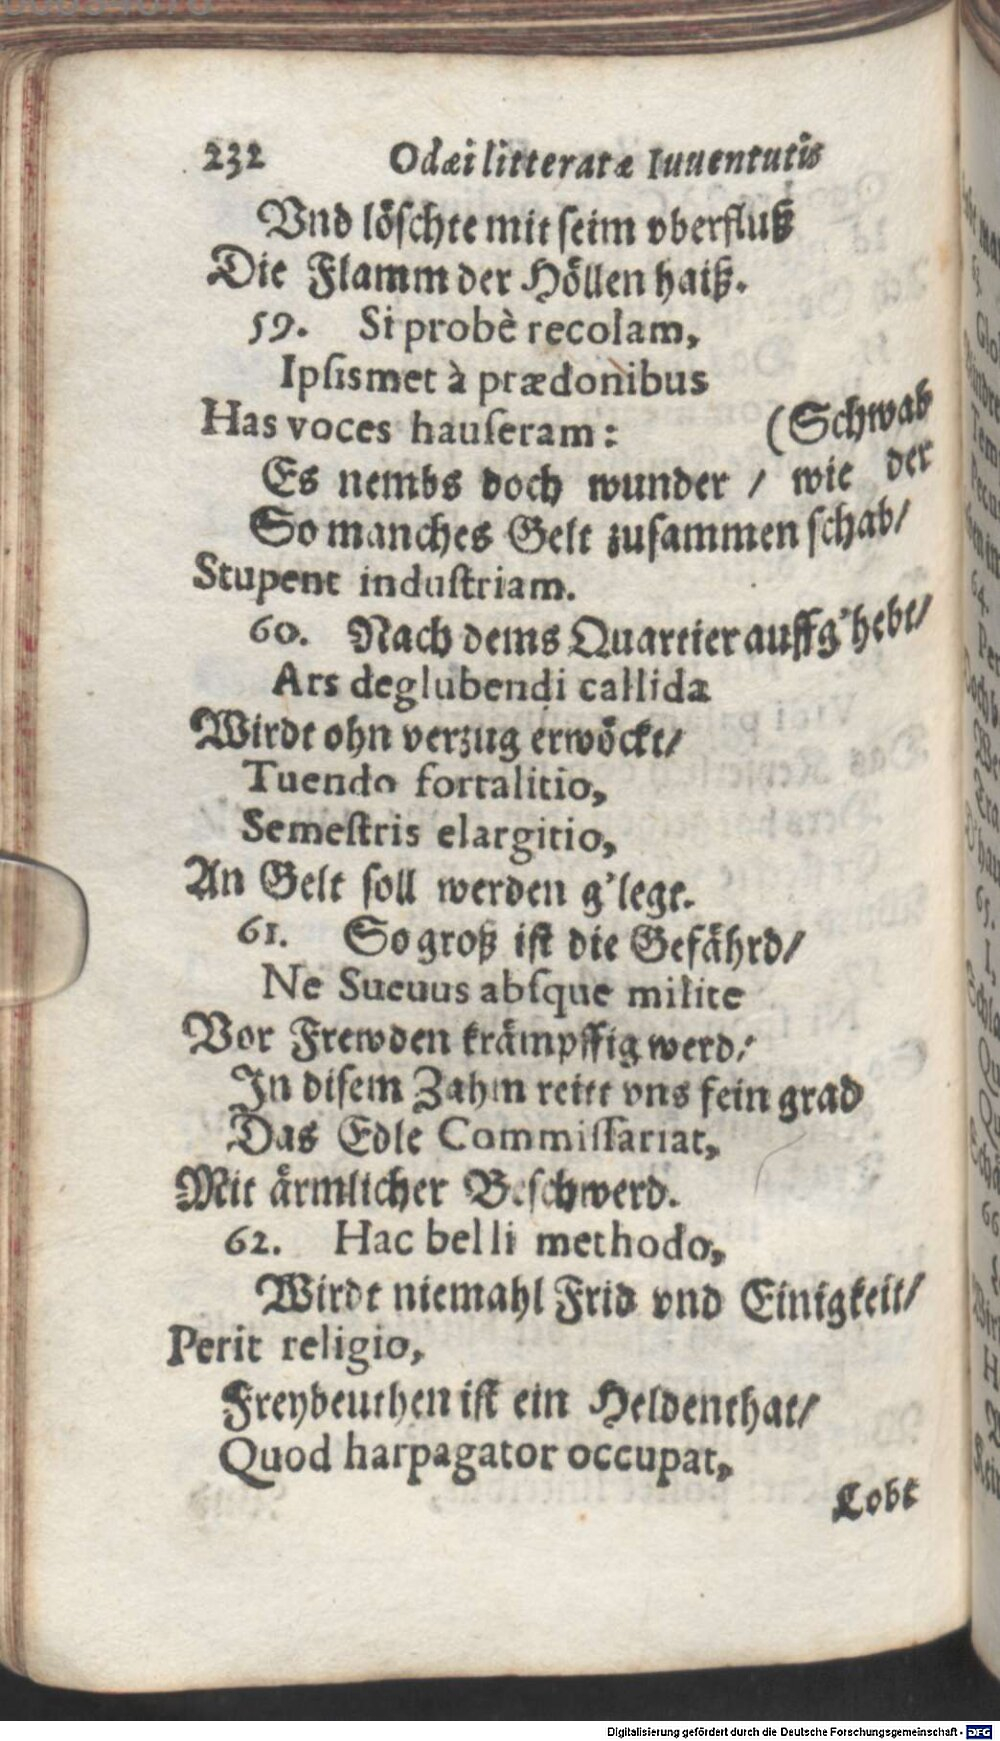 232 Odæi litteratæ Iuuentutis
Vnd löschte mit seim vberfluß
Die Flamm der Höllen haiß.
59. Si probè recolam,
Ipsismet à prædonibus
Has voces hauseram: (Schwab
Es nembs doch wunder / wie der
So manches Gelt zusammen schab/
Stupent industriam.
60. Nach dems Quartier auffg'hebt/
Ars deglubendi callida
Wirdt ohn verzug erwöckt/
Tuendo fortalitio,
Semestris elargitio,
An Gelt soll werden g'legt.
61. So groß ist die Gefährd/
Ne Sueuus absque milite
Vor Frewden krämpffig werd/
In disem Zahm reitt vns fein grad
Das Edle Commissariat,
Mit ärmlicher Beschwerd.
62. Hac belli methodo,
Wirdt niemahl Frid vnd Einigkeit/
Perit religio,
Freybeuthen ist ein Heldenthat/
Quod harpagator occupat,
Lobt
Digitalisierung gefördert durch die Deutsche Forschungsgemeinschaft - DFG